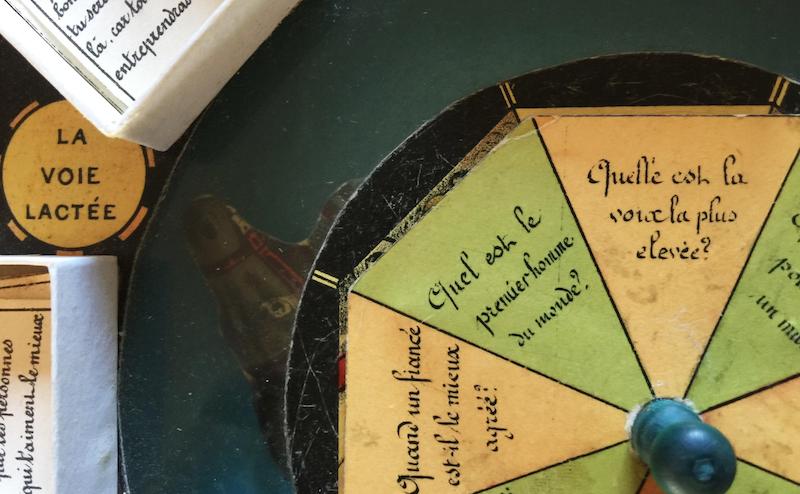 tu sera
là. car ton
entreprendras
LA
VOIE
LACTÉE
que les personnes
qui t'aiment le mieux
Quel est le
premier homme
du monde?
Quelle est la
voix la plus
elevée?
un
Quand un fiancé
est-il le mieux
agréé?